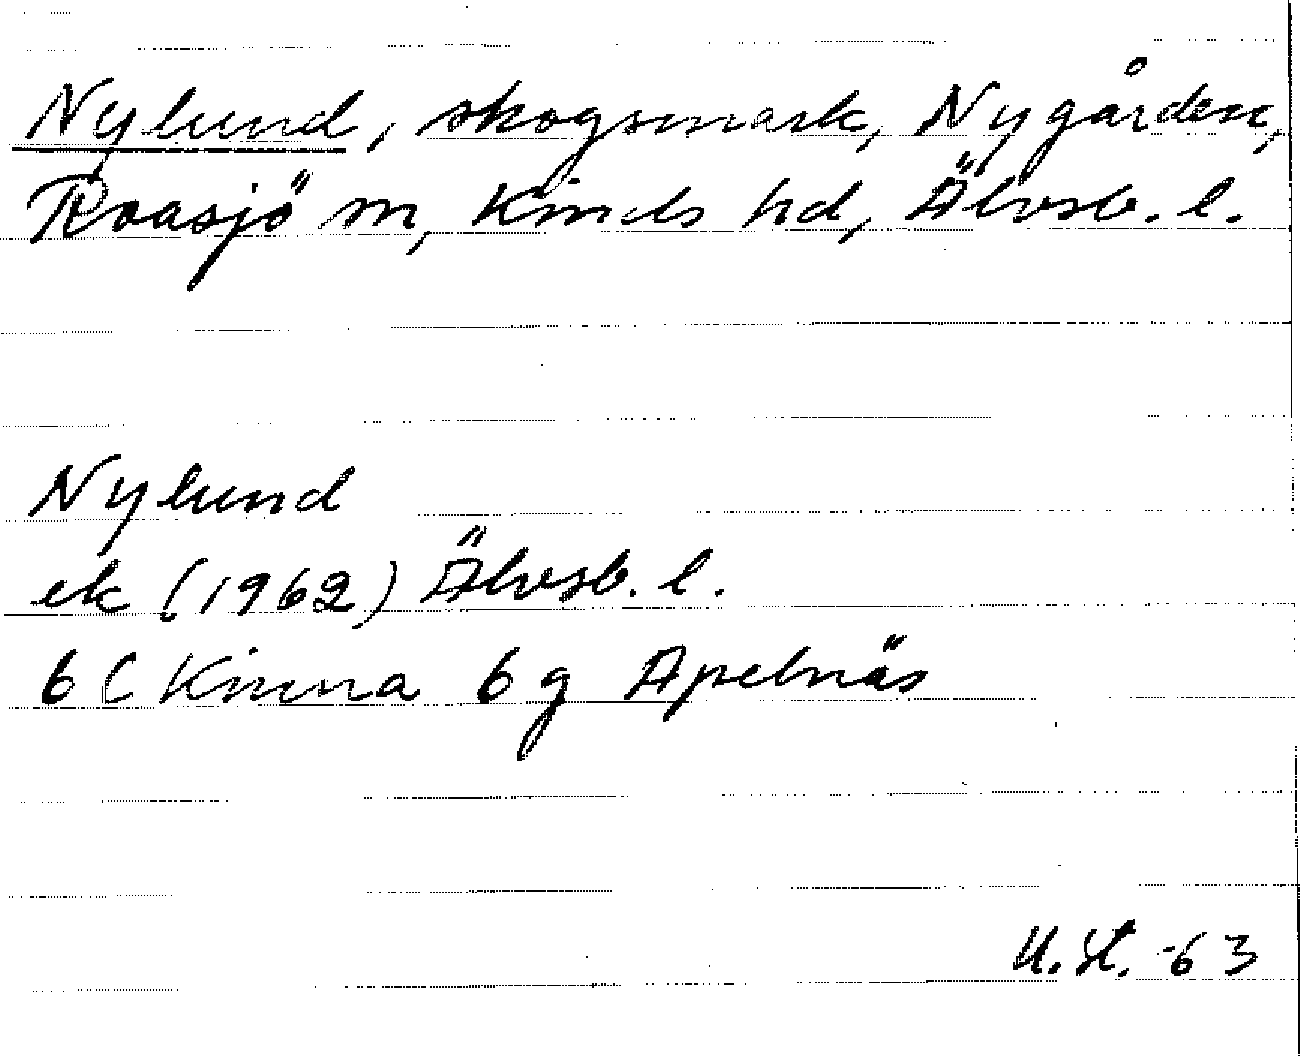 Nylund, skogsmark, Nygården,
Roasjö sn, Kinds hd, Älvsb. l.
Nylund
ek (1962) Älvsb. l.
6 C Kinna 6 g Apelnäs
U. St. -63